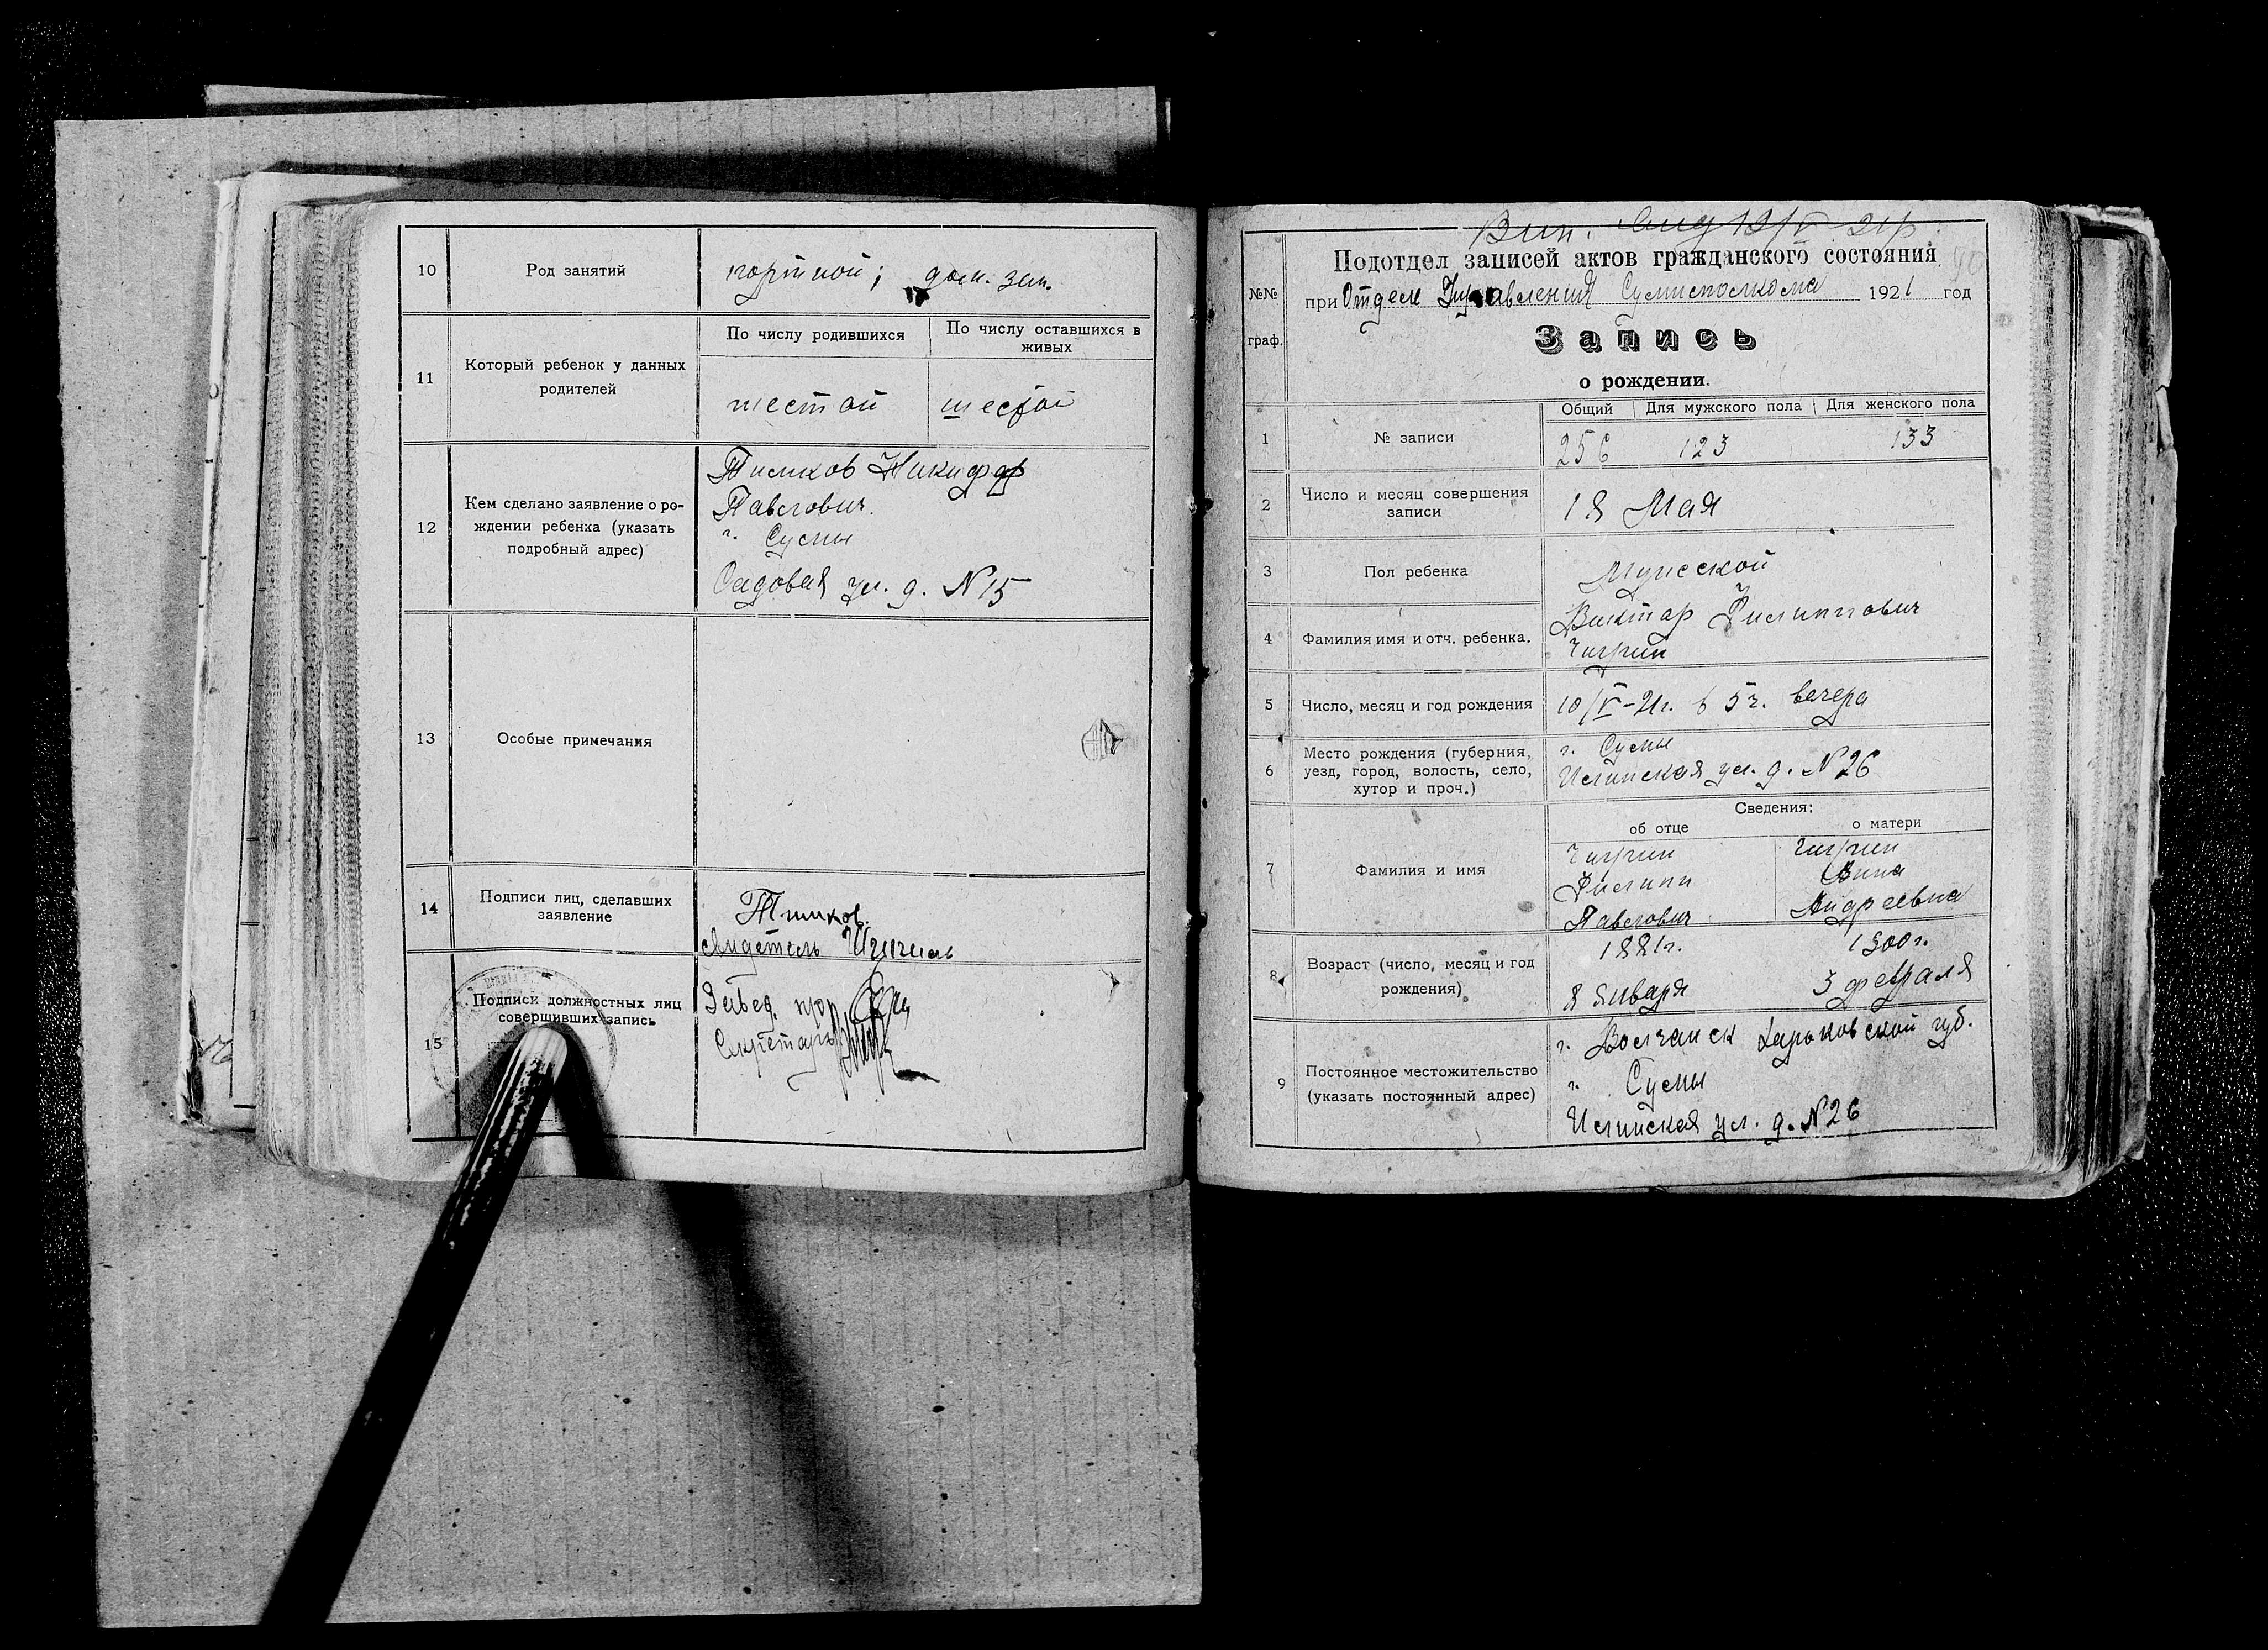 10
Род занятий
портной; дом. зан.
11
Который ребенок у данных
родителей
По числу родившихся
По числу оставшихся в
живых
шестой
шестой
12
Кем сделано заявление о ро-
ждении ребенка (указать
подробный адрес)
Никифор
Павлович.
г. Сумы
Садовая ул. д. N 15
13
Особые примечания
14
Подписи лиц, сделавших
заявление
свидетель
15
Подписи должностных лиц
совершивших запись
Завед.
Секретарь
Подотдел записей актов гражданского состояния
№№
граф.
при Отделе Управления Сумисполкома 1921 год
Запись
о рождении.
1
№ записи
Общий
Для мужского пола
Для женского пола
256
123
133
2
Число и месяц совершения
записи
18 Мая
3
Пол ребенка
Мужской
4
Фамилия имя и отч. ребенка.
Виктор Филиппович
Чигрин
5
Число, месяц и год рождения
10/V-21г. в 5 ч. вечера
6
Место рождения (губерния,
уезд, город, волость, село,
хутор и проч.)
г. Сумы
Илинская ул. д. N 26
7
Фамилия и имя
Сведения:
об отце
о матери
Чигрин
Филипп
Павлович
Чигрин
Анна
Андреевна
8
Возраст (число, месяц и год
рождения)
1881г.
8 Января
1900г.
3 февраля
9
Постоянное местожительство
(указать постоянный адрес)
г. Волчанск Харьковской губ.
г. Сумы
Илинская ул. д. N 26